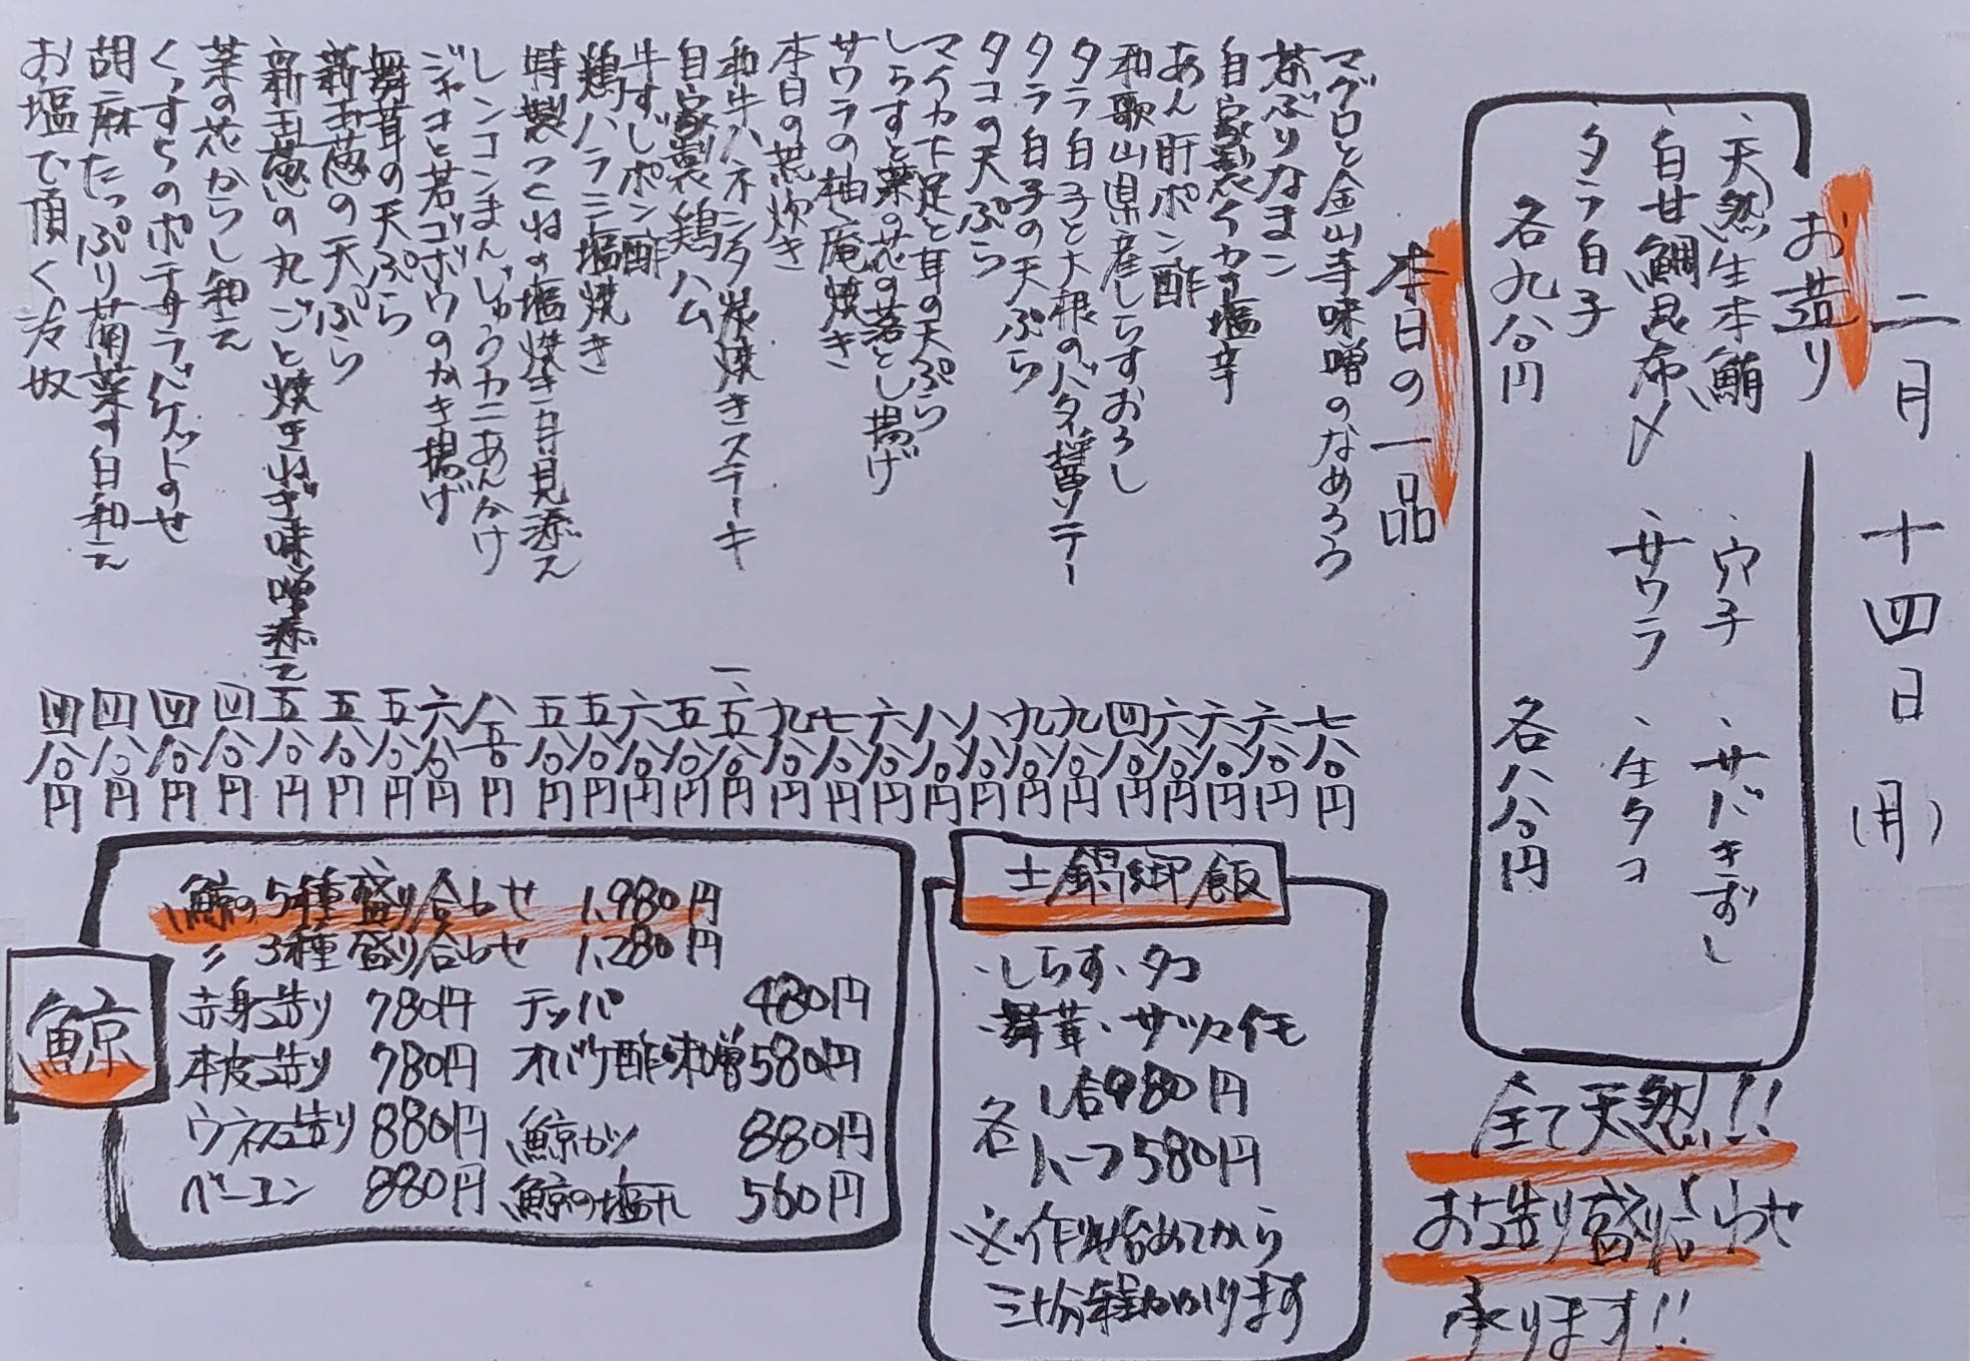 二月十四日(月)
お造り
、天然生本鮪 、穴子 、サバきずし
、白甘鯛昆布〆 、サワラ 、生タコ
、タラ白子
各九八〇円 各八八〇円
全て天然!!
お造り盛り合わせ
承ります!!
本日の一品
マグロと金山寺味噌のなめろう 七八〇円
茶ぶりなまこ 六八〇円
自家製イカ塩辛 六八〇円
あん肝ポン酢 六八〇円
和歌山県産しらすおろし 四八〇円
タラ白子と大根のバタ醤ソテー 九八〇円
タラ白子の天ぷら 九八〇円
タコの天ぷら 八八〇円
マイカ下足と耳の天ぷら 八八〇円
しらすと菜の花の落とし揚げ 六八〇円
サワラの柚庵焼き 七八〇円
本日の荒炊き 九八〇円
和牛ハネシタ炭焼きステーキ 一、五八〇円
自家製鶏ハム 五八〇円
牛すじポン酢 六八〇円
鶏ハラミ塩焼き 五八〇円
特製つくねの塩焼き月見添え 五八〇円
レンコンまんじゅうカニあんかけ 八五〇円
ジャコと若ゴボウのかき揚げ 六八〇円
舞茸の天ぷら 五八〇円
新玉葱の天ぷら 五八〇円
新玉葱の丸ごと焼きねぎ味噌添え 五八〇円
菜の花からし和え 四八〇円
くっすらのポテサラバゲットのせ 四八〇円
胡麻たっぷり菊菜の白和え 四八〇円
お塩で頂く冷奴 四八〇円
土鍋御飯
・しらす・タコ
・舞茸・サツマイモ
各 1合980円
ハーフ580円
※作り始めてから
三十分程かかります
鯨
鯨の5種盛り合わせ 1,980円
〃 3種盛り合わせ 1,280円
赤身造り 780円 テッパ 480円
本皮造り 780円 オバケ酢味噌 580円
ウネス造り 880円 鯨カツ 880円
ベーコン 880円 鯨の塩干 560円